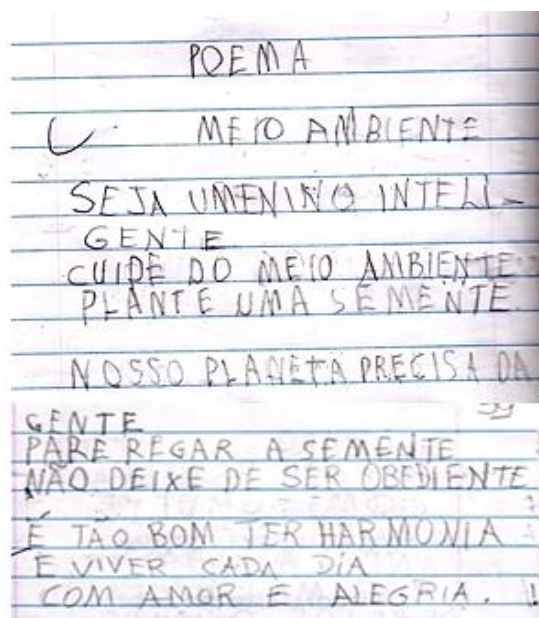 POEMA
MEIO AMBIENTE
SEJA UMENINO INTELI-
GENTE
CUIDE DO MEIO AMBIENTE
PLANTE UMA SEMENTE
NOSSO PLANETA PRECISA DA
GENTE
PARE REGAR A SEMENTE
NÃO DEIXE DE SER OBEDIENTE
É TÃO BOM TER HARMONIA
E VIVER CADA DIA
COM AMOR E ALEGRIA. !